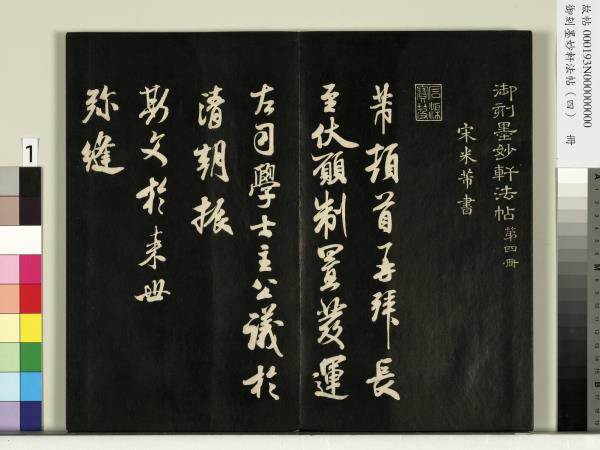 故帖 000193N000000000
御刻墨妙軒法帖（四） 冊
御刻墨妙軒法帖 第四冊
宋米芾書
芾頓首再拜長
至伏願制置發運
左司學士主公議於
清朝振
斯文於來世
弥縫
1
A